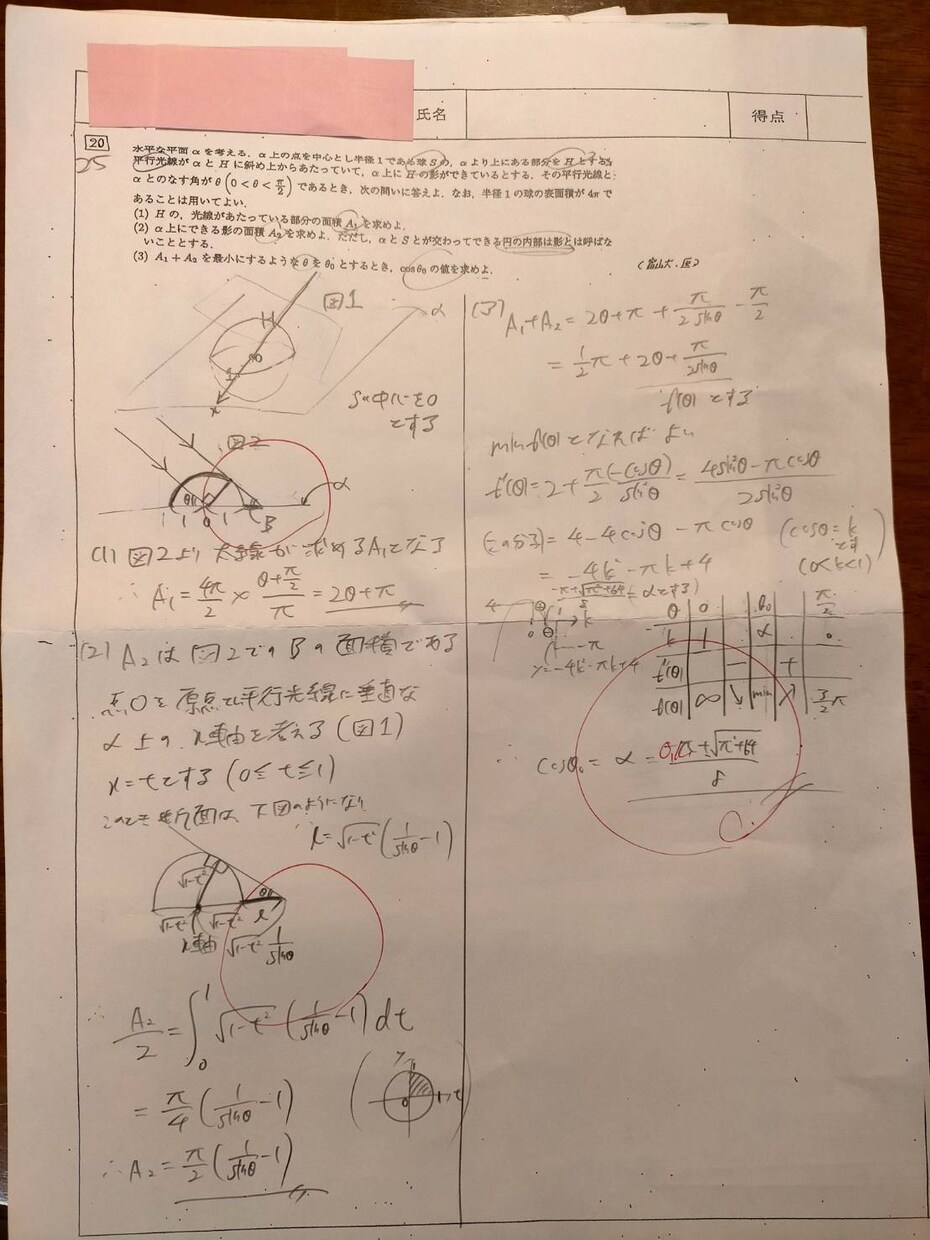 氏名
得点
20
25
水平な平面 α を考える. α 上の点を中心とし半径 1 である球 S の, α より上にある部分を H とする.
平行光線が α と H に斜め上からあたっていて, α 上に H の影ができているとする. その平行光線と
α とのなす角が θ (0 < θ < π/2) であるとき, 次の問いに答えよ. なお, 半径 1 の球の表面積が 4π で
あることは用いてよい.
(1) H の, 光線があたっている部分の面積 A₁ を求めよ.
(2) α 上にできる影の面積 A₂ を求めよ. ただし, α と S とが交わってできる円の内部は影とは呼ばな
いこととする.
(3) A₁ + A₂ を最小にするような θ を θ₀ とするとき, cos θ₀ の値を求めよ.
(富山大・医)
図1
H
α
O
1
x
Sの中心をO
とする
図2
α
θ
1 1 0 1 B
(1) 図2より 太線が求めるA₁となる
∴ A₁ = 4π/2 × (θ+π/2)/π = 2θ+π
(2) A₂は図2でのBの面積である
点Oを原点として平行光線に垂直な
α上のx軸を考える (図1)
x=tとする (0≦t≦1)
このとき 断面は、下図のようになり
l=√1-t² (1/sinθ -1)
√1-t²
θ
√1-t² √1-t² l
x軸 √1-t² 1/sinθ
∴ A₂/2 = ∫₀¹ √1-t² (1/sinθ -1) dt
= π/4 (1/sinθ -1)
∴ A₂ = π/2 (1/sinθ -1)
(3)
A₁+A₂ = 2θ+π + π/2sinθ - π/2
= 1/2 π + 2θ + π/2sinθ
f(θ) とする
min f(θ) となればよい
f'(θ) = 2 + π/2 (-cosθ)/sin²θ = (4sin²θ-πcosθ)/2sin²θ
(この分子) = 4-4cos²θ - πcosθ (cosθ=k とす
= -4k²-πk+4 (0<k<1)
(-π+√π²+64)/8 = αとする)
y=-4k²-πk+4
θ 0 θ₀ π/2
k 1 α 0
f'(θ) - +
f(θ) ∞ ↘ min ↗ 3/2 π
∴ cosθ₀ = α = (-π+√π²+64)/8